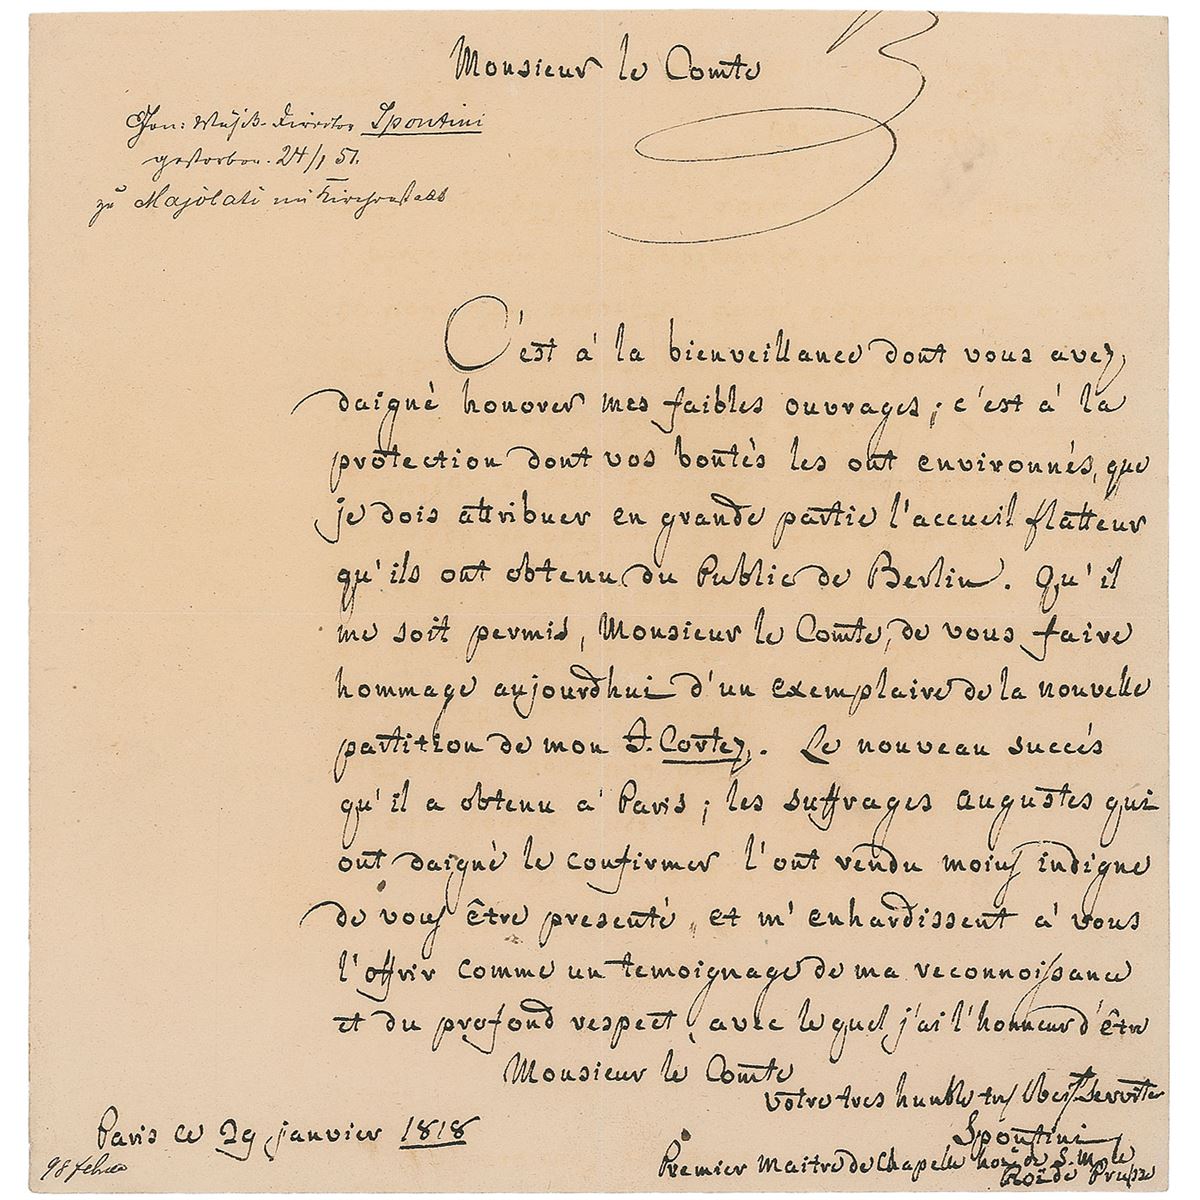 Monsieur le Comte
Gen: Musik-Director Spontini
gestorben 24/1 51.
zu Majolati im Kirchenstaat
C'est a' la bienveillance dont vous avez
daigné honorer mes faibles ouvrages; c'est a' la
protection dont vos bontés les ont environnés, que
je dois attribuer en grande partie l'accueil flatteur
qu'ils ont obtenu du Public de Berlin. Qu'il
me soit permis, Monsieur le Comte, de vous faire
hommage aujourdhui d'un exemplaire de la nouvelle
partition de mon F. Cortez. Le nouveau succés
qu'il a obtenu a' Paris; les suffrages augustes qui
ont daigné le confirmer l'ont rendu moins indigne
de vous être presenté, et m'enhardissent a' vous
l'offrir comme un temoignage de ma reconnoissance
et du profond respect, avec lequel j'ai l'honneur d'être
Monsieur le Comte
Votre tres humble tres Obeist. Serviter
Paris ce 29 janvier 1818
Spontini
Premier Maitre de Chapelle hore. de S. M. le
Roi de Prusse
98